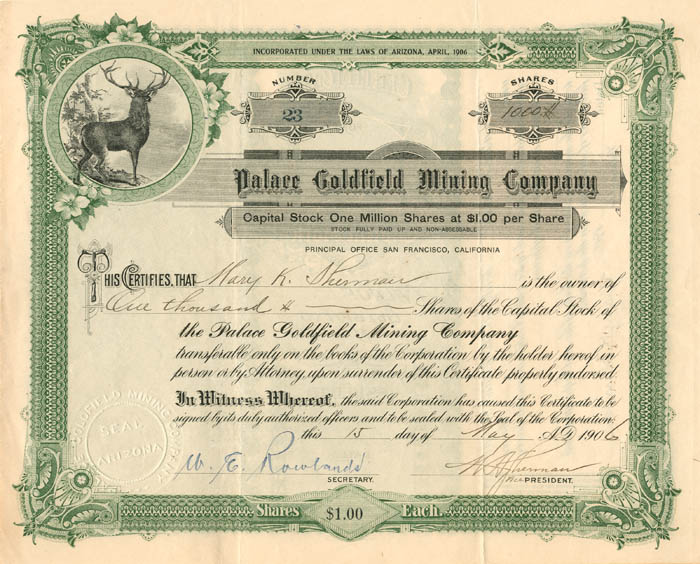 INCORPORATED UNDER THE LAWS OF ARIZONA, APRIL, 1906
NUMBER
23
SHARES
1000
Palace Goldfield Mining Company
Capital Stock One Million Shares at $1.00 per Share
STOCK FULLY PAID UP AND NON-ASSESSABLE
PRINCIPAL OFFICE SAN FRANCISCO, CALIFORNIA
THIS CERTIFIES, THAT Mary K. Sherman is the owner of
One thousand Shares of the Capital Stock of
the Palace Goldfield Mining Company
transferable only on the books of the Corporation by the holder hereof in
person or by Attorney, upon surrender of this Certificate properly endorsed.
In Witness Whereof, the said Corporation has caused this Certificate to be
signed by its duly authorized officers and to be sealed with the Seal of the Corporation:
this 15 day of May A.D. 1906
W. E. Rowlands
SECRETARY.
Sherman
Vice PRESIDENT.
GOLDFIELD MINING COMPANY
SEAL
ARIZONA
Shares $1.00 Each.